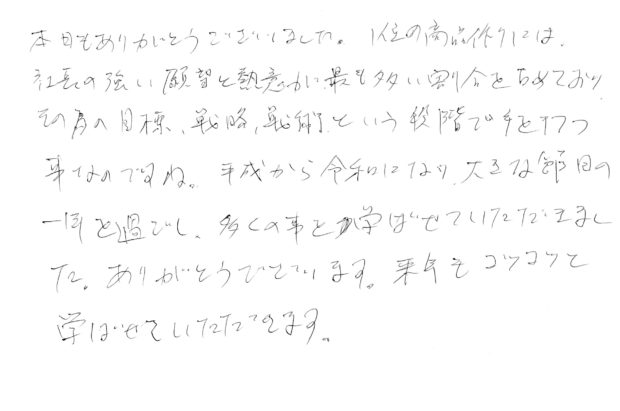 本日もありがとうございました。1位の商品作りには、
社長の強い願望と熱意が最も多い割合をしめており
その為の目標、戦略、戦術という段階で手を打つ
事なのですね。平成から令和になり、大きな節目の
一年を過ごし、多くの事を学ばせていただきまし
た。ありがとうございます。来年もコツコツと
学ばせていただきます。